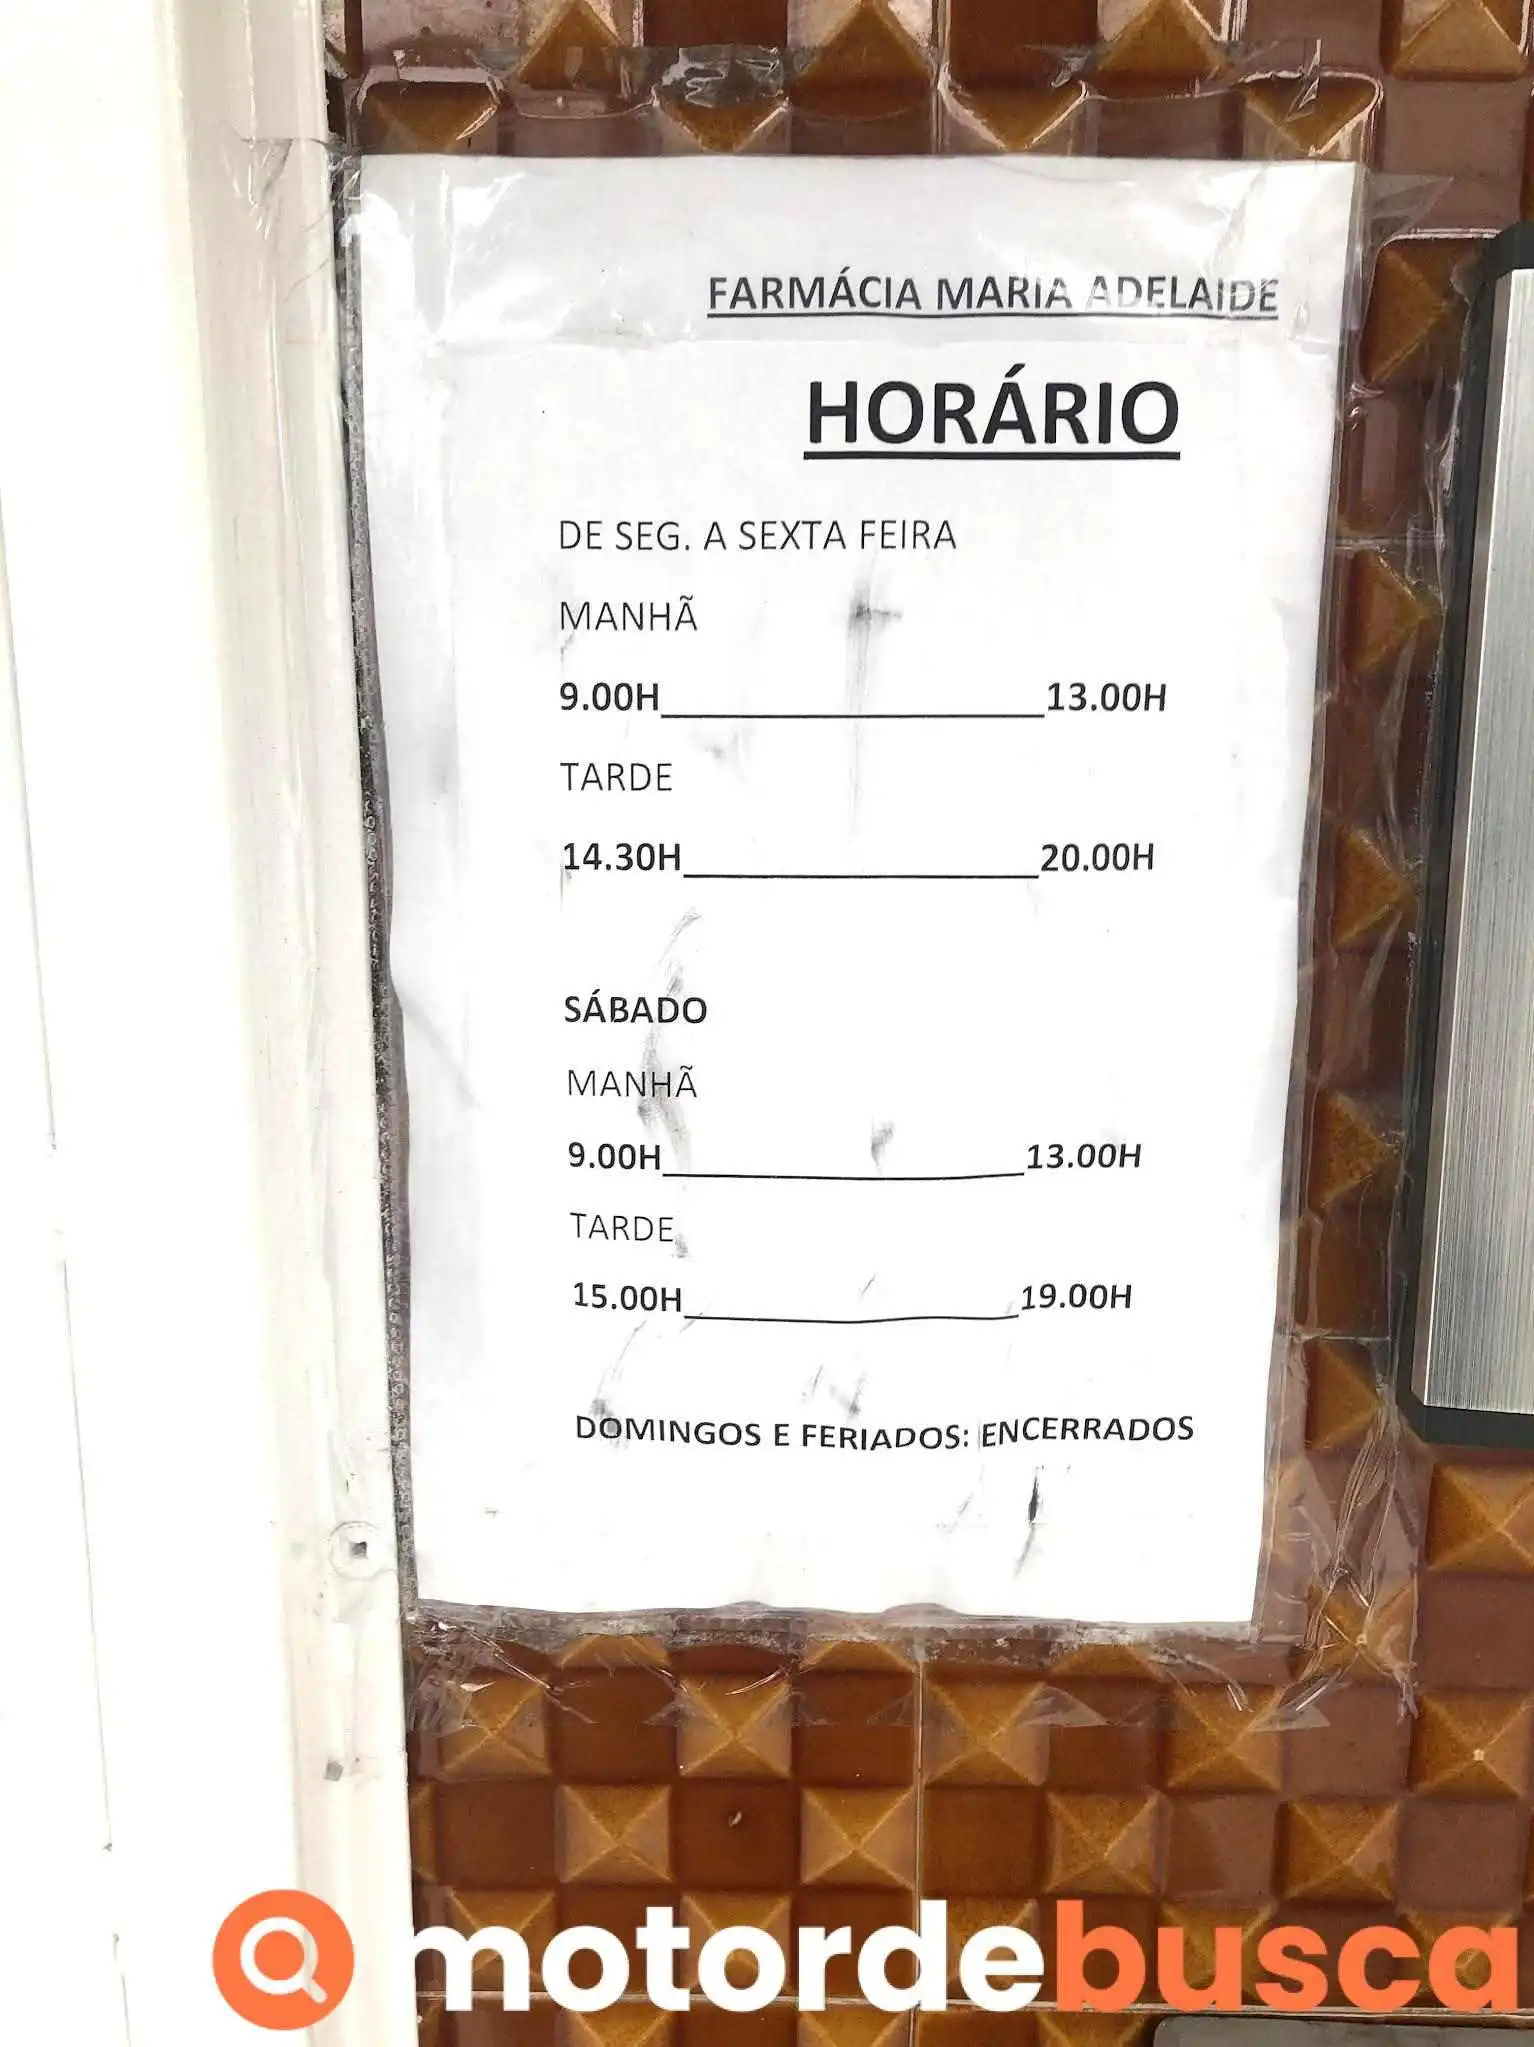 FARMÁCIA MARIA ADELAIDE
HORÁRIO
DE SEG. A SEXTA FEIRA
MANHÃ
9.00H____________________13.00H
TARDE
14.30H___________________20.00H
SÁBADO
MANHÃ
9.00H____________________13.00H
TARDE
15.00H___________________19.00H
DOMINGOS E FERIADOS: ENCERRADOS
motordebusca